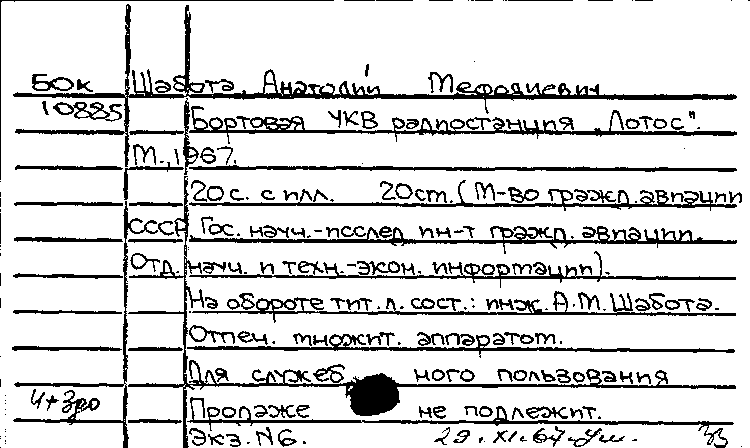 БОК Шабота, Анатолий Мефодиевич
10885 Бортовая УКВ радиостанция „Лотос".
М., 1967.
20 с. с илл. 20 см. (М-во гражд. авиации
СССР. Гос. науч.-исслед. ин-т гражд. авиации.
Отд. науч. и техн.-экон. информации).
На обороте тит. л. сост.: инж. А. М. Шабота.
Отпеч. множит. аппаратом.
Для служебного пользования
Продаже не подлежит.
Экз. №6. 29.XI.67.